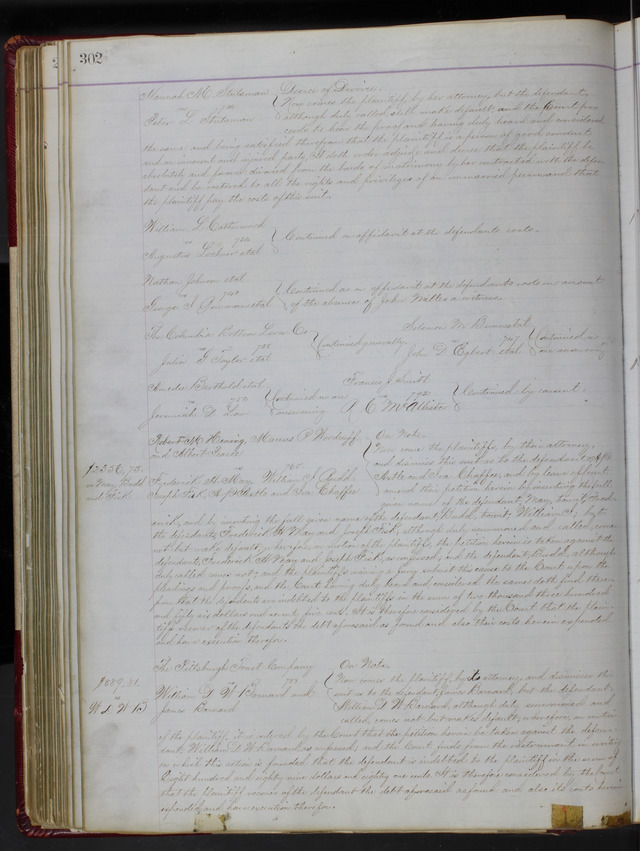 302
Hannah M. Stutsman Decree of Divorce.
vs Now comes the plaintiff by her attorney, but the defendant,
Peter L. Stutsman although duly called still make default, and the Court pro
ceeds to hear the proof and having duly heard and considered
the same and being satisfied therefrom that the plaintiff is a person of good conduct
and an innocent and injured party, It doth order adjudge and decree that the plaintiff be
absolutely and forever divorced from the bonds of matrimony by her contracted with the defen
dant and be restored to all the rights and privileges of an unmarried person and that
the plaintiff pay the costs of this suit.
William L.
vs Continued on affidavit at the defendants costs.
Augustus etal
Nathan Johnson etal
vs Continued as on affidavit at the defendants costs on account
George etal of the absence of John a witness.
The Columbia Co Solomon W.
vs Continued generally vs Continued on
Julia F. Taylor etal John D. Egbert etal
Amedee Berthold etal Francis J. Smith
vs Continued on vs Continued by consent.
Jeremiah D. R. C. McAllister
Robert M. Marcus P. On Note.
and Albert
vs Now come the plaintiffs, by their attorney,
$2356.75 Frederick H. May, William J. Budd, and dismiss this suit as to the defendants
vs May, Budd and Fisk Joseph Fisk, and Ira Chaffee and Ira Chaffee, and by leave of Court
amend their petition herein by inserting the full
given name of the defendant, May, to wit, Fred
erick, and by inserting the full given name of the defendant, Budd, to wit: William J., but
the defendants, Frederick H. May and Joseph Fisk, although duly summoned and called, come
not but make default, wherefore, on motion of the plaintiffs, the petition herein is taken against the
defendants, Frederick H. May and Joseph Fisk, as confessed, and the defendant, Budd, although
duly called comes not; and the plaintiffs submit this cause to the Court upon the
pleadings and proofs, and the Court having duly heard and considered the same doth find there
from that the defendants are indebted to the plaintiffs in the sum of two thousand three hundred
and fifty six dollars and seventy five cents. It is therefore considered by the Court that the plain
tiffs recover of the defendants the debt aforesaid as found and also their costs herein expended
and have execution therefor.
The Pittsburgh Trust Company On Note.
$889.81 vs Now comes the plaintiff, by its attorney, and dismisses this
vs William D. W. Barnard and suit as to the defendant, James Barnard, but the defendant,
W. D. W. B. James Barnard William D. W. Barnard, although duly summoned and
called, comes not but makes default; wherefore, on motion
of the plaintiff, it is ordered by the Court that the petition herein be taken against the defen
dant, William D. W. Barnard, as confessed; and the Court finds from the instrument in writing
on which this action is founded that the defendant is indebted to the plaintiff in the sum of
Eight hundred and eighty nine dollars and eighty one cents. It is therefore considered by the Court
that the plaintiff recover of the defendant the debt aforesaid as found and also its costs herein
expended, and have execution therefor.